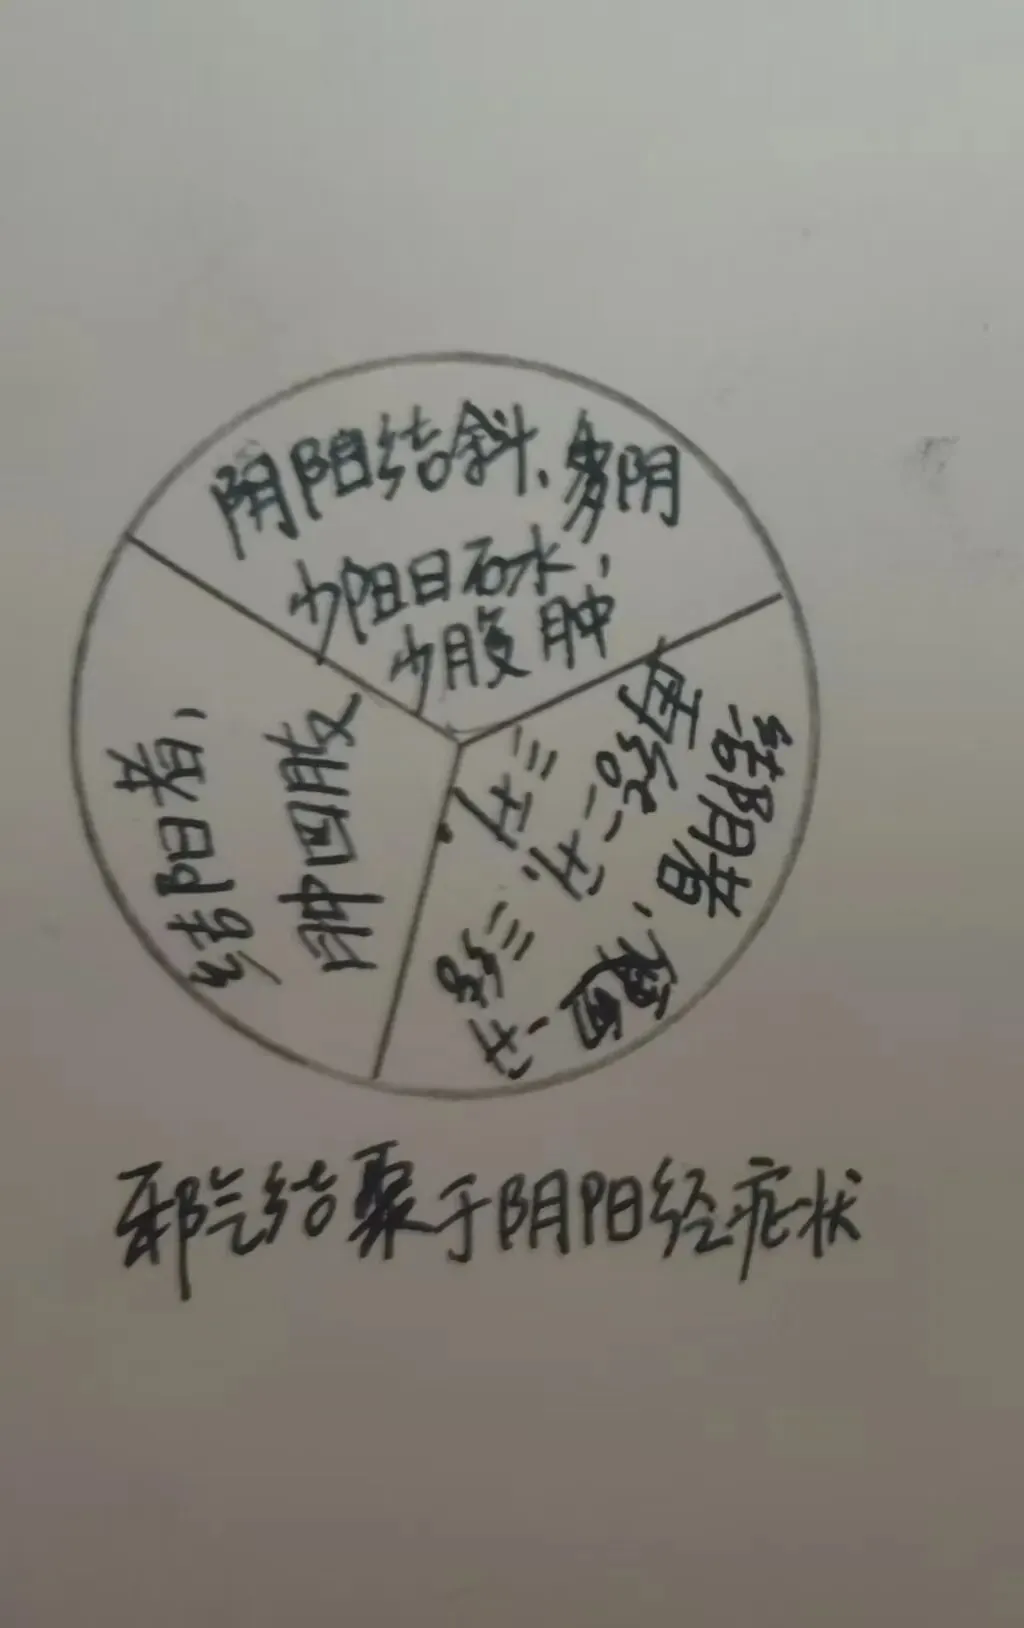 阴阳结斜、多阴
少阳曰石水，
少腹肿
结阳者，
肿四肢
结阴者，便血一升
再结二升，三结
三升
邪气结聚于阴阳经症状